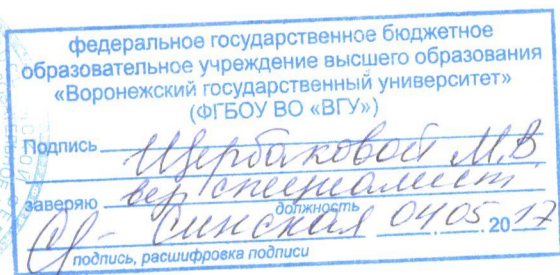 федеральное государственное бюджетное
образовательное учреждение высшего образования
«Воронежский государственный университет»
(ФГБОУ ВО «ВГУ»)
Подпись Щербаковой М.В
заверяю вед специалист
должность
Синская 04.05.2017
подпись, расшифровка подписи